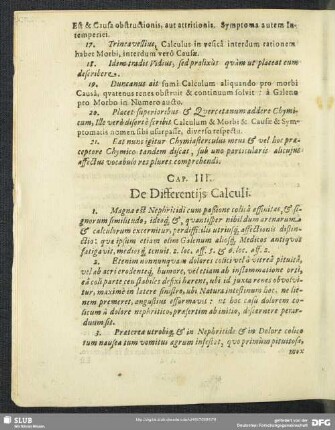 Est & Causa obstructionis, aut attritionis. Symptoma autem Intemperiei.
17. Trincavellius, Calculus in vesicâ interdum rationem
habet Morbi, interdum verò Causæ.
18. Idem tradit Vidius, sed prolixius quàm ut placeat eum
describere.
19. Duncanus ait sumi Calculum aliquando pro morbi
Causâ, quatenus renes obstruit & continuum solvit: à Galeno
pro Morbo in Numero aucto.
20. Placet superioribus & Quercetanum addere Chymicum,
Ille verò disertè scribit Calculum & Morbi & Causæ & Symptomatis
nomen sibi usurpasse, diverso respectu.
21. Eat nunc igitur Chymiasterculus meus & vel hoc præceptore
Chymico tandem discat, sub uno particularis alicujus
affectus vocabulo res plures comprehendi.
CAP. III.
De Differentijs Calculi.
1. Magna est Nephritidi cum passione colicâ affinitas, & signorum
similitudo, ideoq́; &, quantisper nihildum arenarum
& calculorum excernitur, perdifficilis utriusq́; affectionis distinctio:
qua ipsum etiam olim Galenum aliosq́; Medicos antiquos
fatigavit, medicosq́; tenuit. 2. loc. aff. 5. & 6. loc. aff. 2.
2. Etenim nonnunquam dolores colici vel à vitreâ pituitâ,
vel ab acri erodenteq́; humore, vel etiam ab inflammatione orti,
eâ coli parte constabiles defixi hærent, ubi id juxta renes obvolvitur,
maximè in latere sinistro, ubi Natura intestinum hoc ne itinen
premeret, angustius efformavit: ut hoc casu dolorem colicum
à dolore nephritico, præsertim ab initio, discernere perarduum
sit.
3. Præterea utrobiq́; & in Nephritide & in Dolore colico
tum nausea tum vomitus ægrum infestat, quo primùm pituitosa,
mox
SLUB
Wir führen Wissen.
gefördert von der
DFG
Deutschen Forschungsgemeinschaft